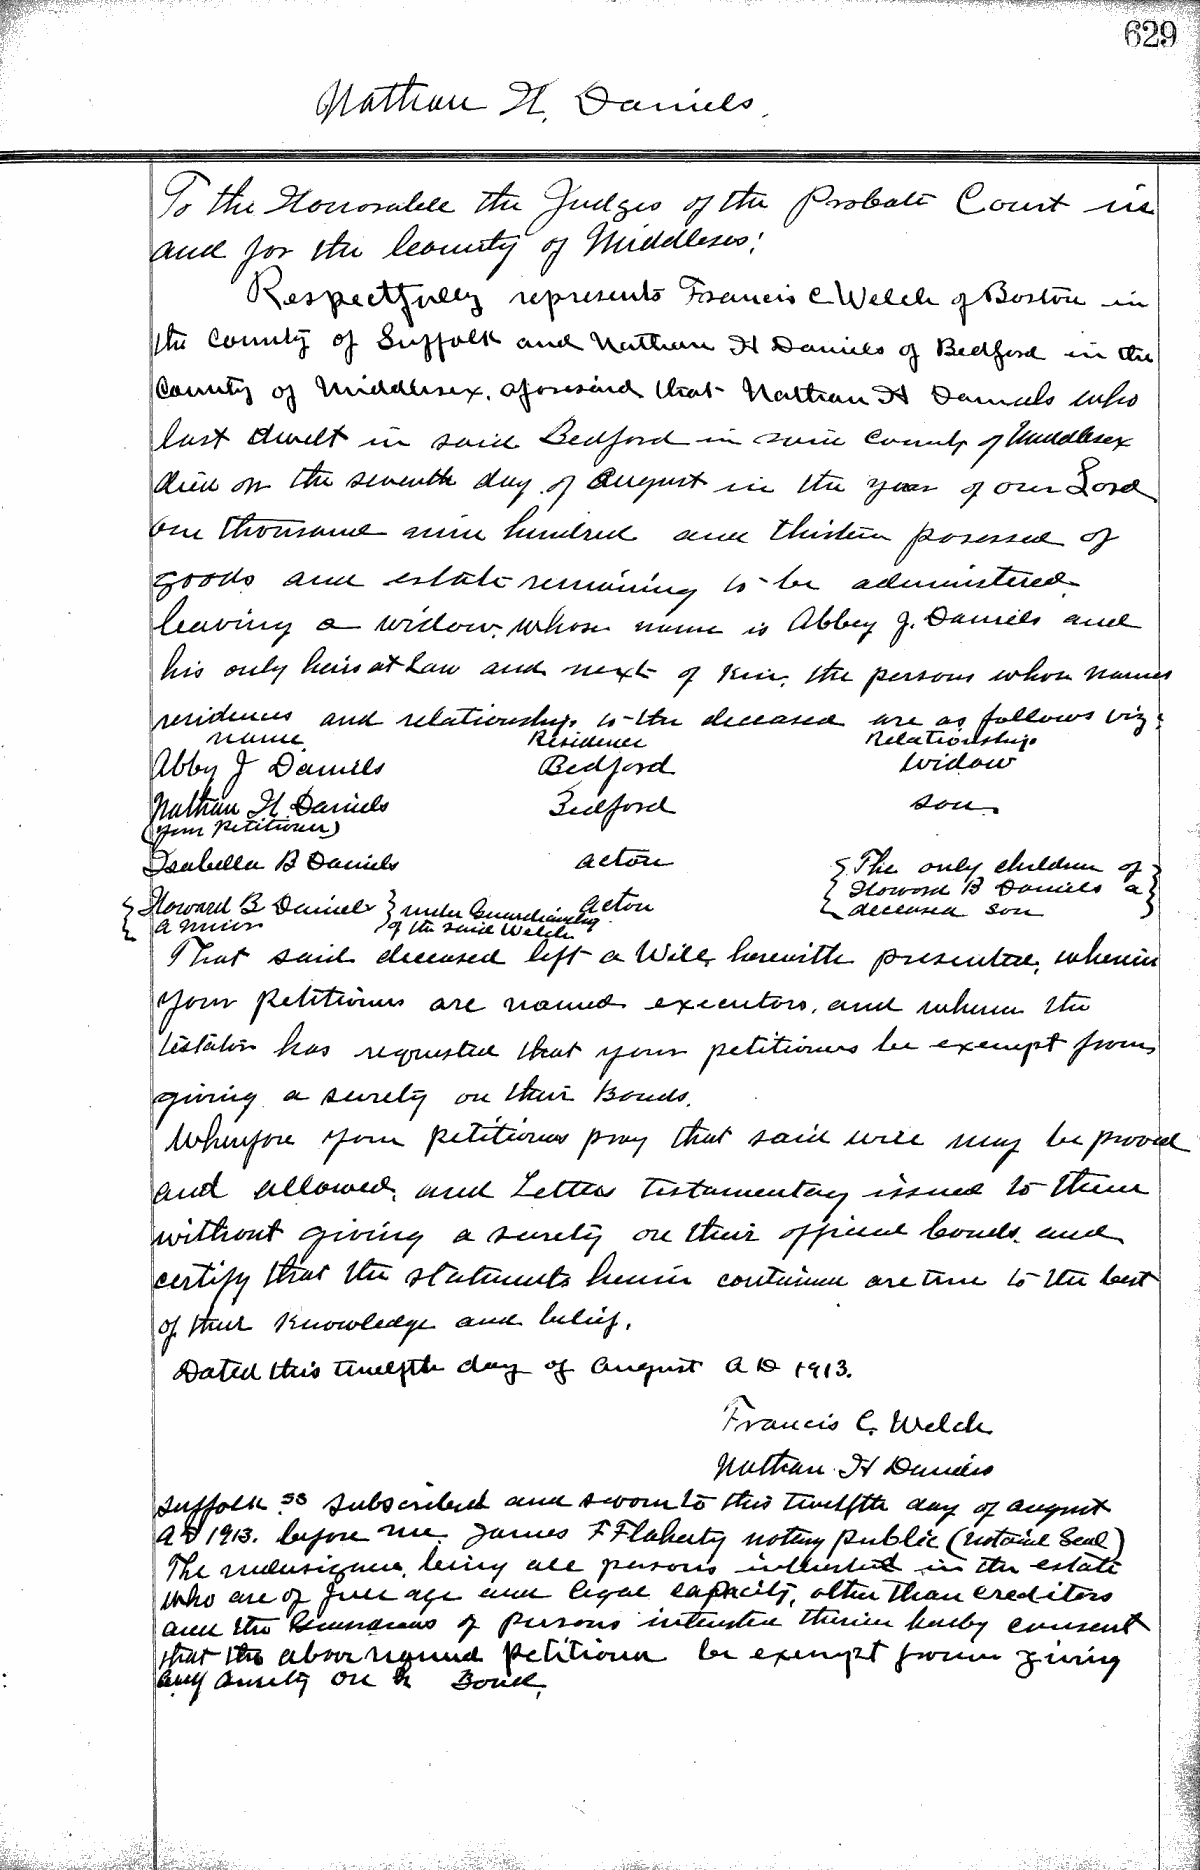 629
Nathan H. Daniels.
To the Honorable the Judges of the Probate Court in
and for the County of Middlesex:
Respectfully represents Francis C Welch of Boston in
the County of Suffolk and Nathan H Daniels of Bedford in the
County of Middlesex, aforesaid that Nathan H Daniels who
last dwelt in said Bedford in said County of Middlesex
died on the seventh day of August in the year of our Lord
one thousand nine hundred and thirteen posessed of
goods and estate remaining to be administered
leaving a widow, whose name is Abbey J. Daniels and
his only heirs at Law and next of kin, the persons whose names
residences and relationship to the deceased are as follows viz:
name Residence Relationship
Abby J Daniels Bedford Widow
Nathan H. Daniels Bedford son.
(your Petitioner)
Isabella B Daniels Acton { The only children of }
{ Howard B Daniels } under Guardianship Acton { Howard B Daniels a }
{ a minor } of the said Welch { deceased son }
That said deceased left a Will herewith presented, wherein
your Petitioners are named executors, and wherein the
testator has requested that your petitioners be exempt from
giving a surety on their Bonds.
Wherefore your Petitioners pray that said will may be proved
and allowed, and Letters testamentary issued to them
without giving a surety on their official bonds. and
certify that the statements herein contained are true to the best
of their knowledge and belief.
Dated this twelfth day of August A D 1913.
Francis C. Welch
Nathan H Daniels
Suffolk ss Subscribed and sworn to this twelfth day of August
A D 1913. before me. James F Flaherty notary public (notarial Seal)
The undersigned, being all persons interested in the estate
who are of full age and legal capacity, other than creditors
and the Guardians of persons interested therein hereby consent
that the above named Petitioner be exempt from giving
any surety on h Bond.